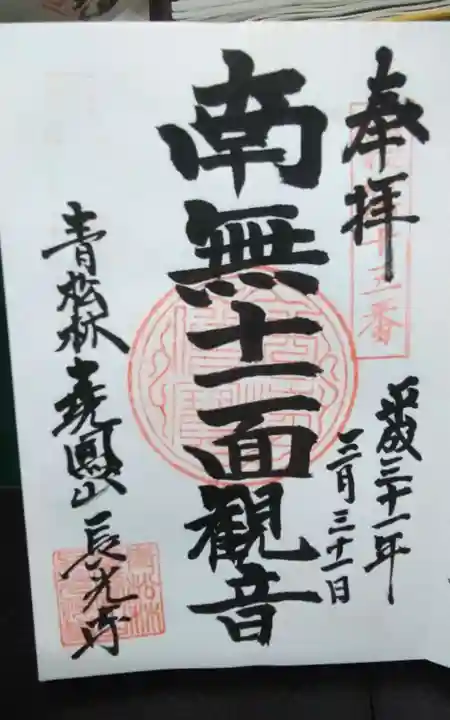 奉拝
平成三十一年
三月三十一日
南無十一面観音
青松林
鳳山
長光寺
青松林